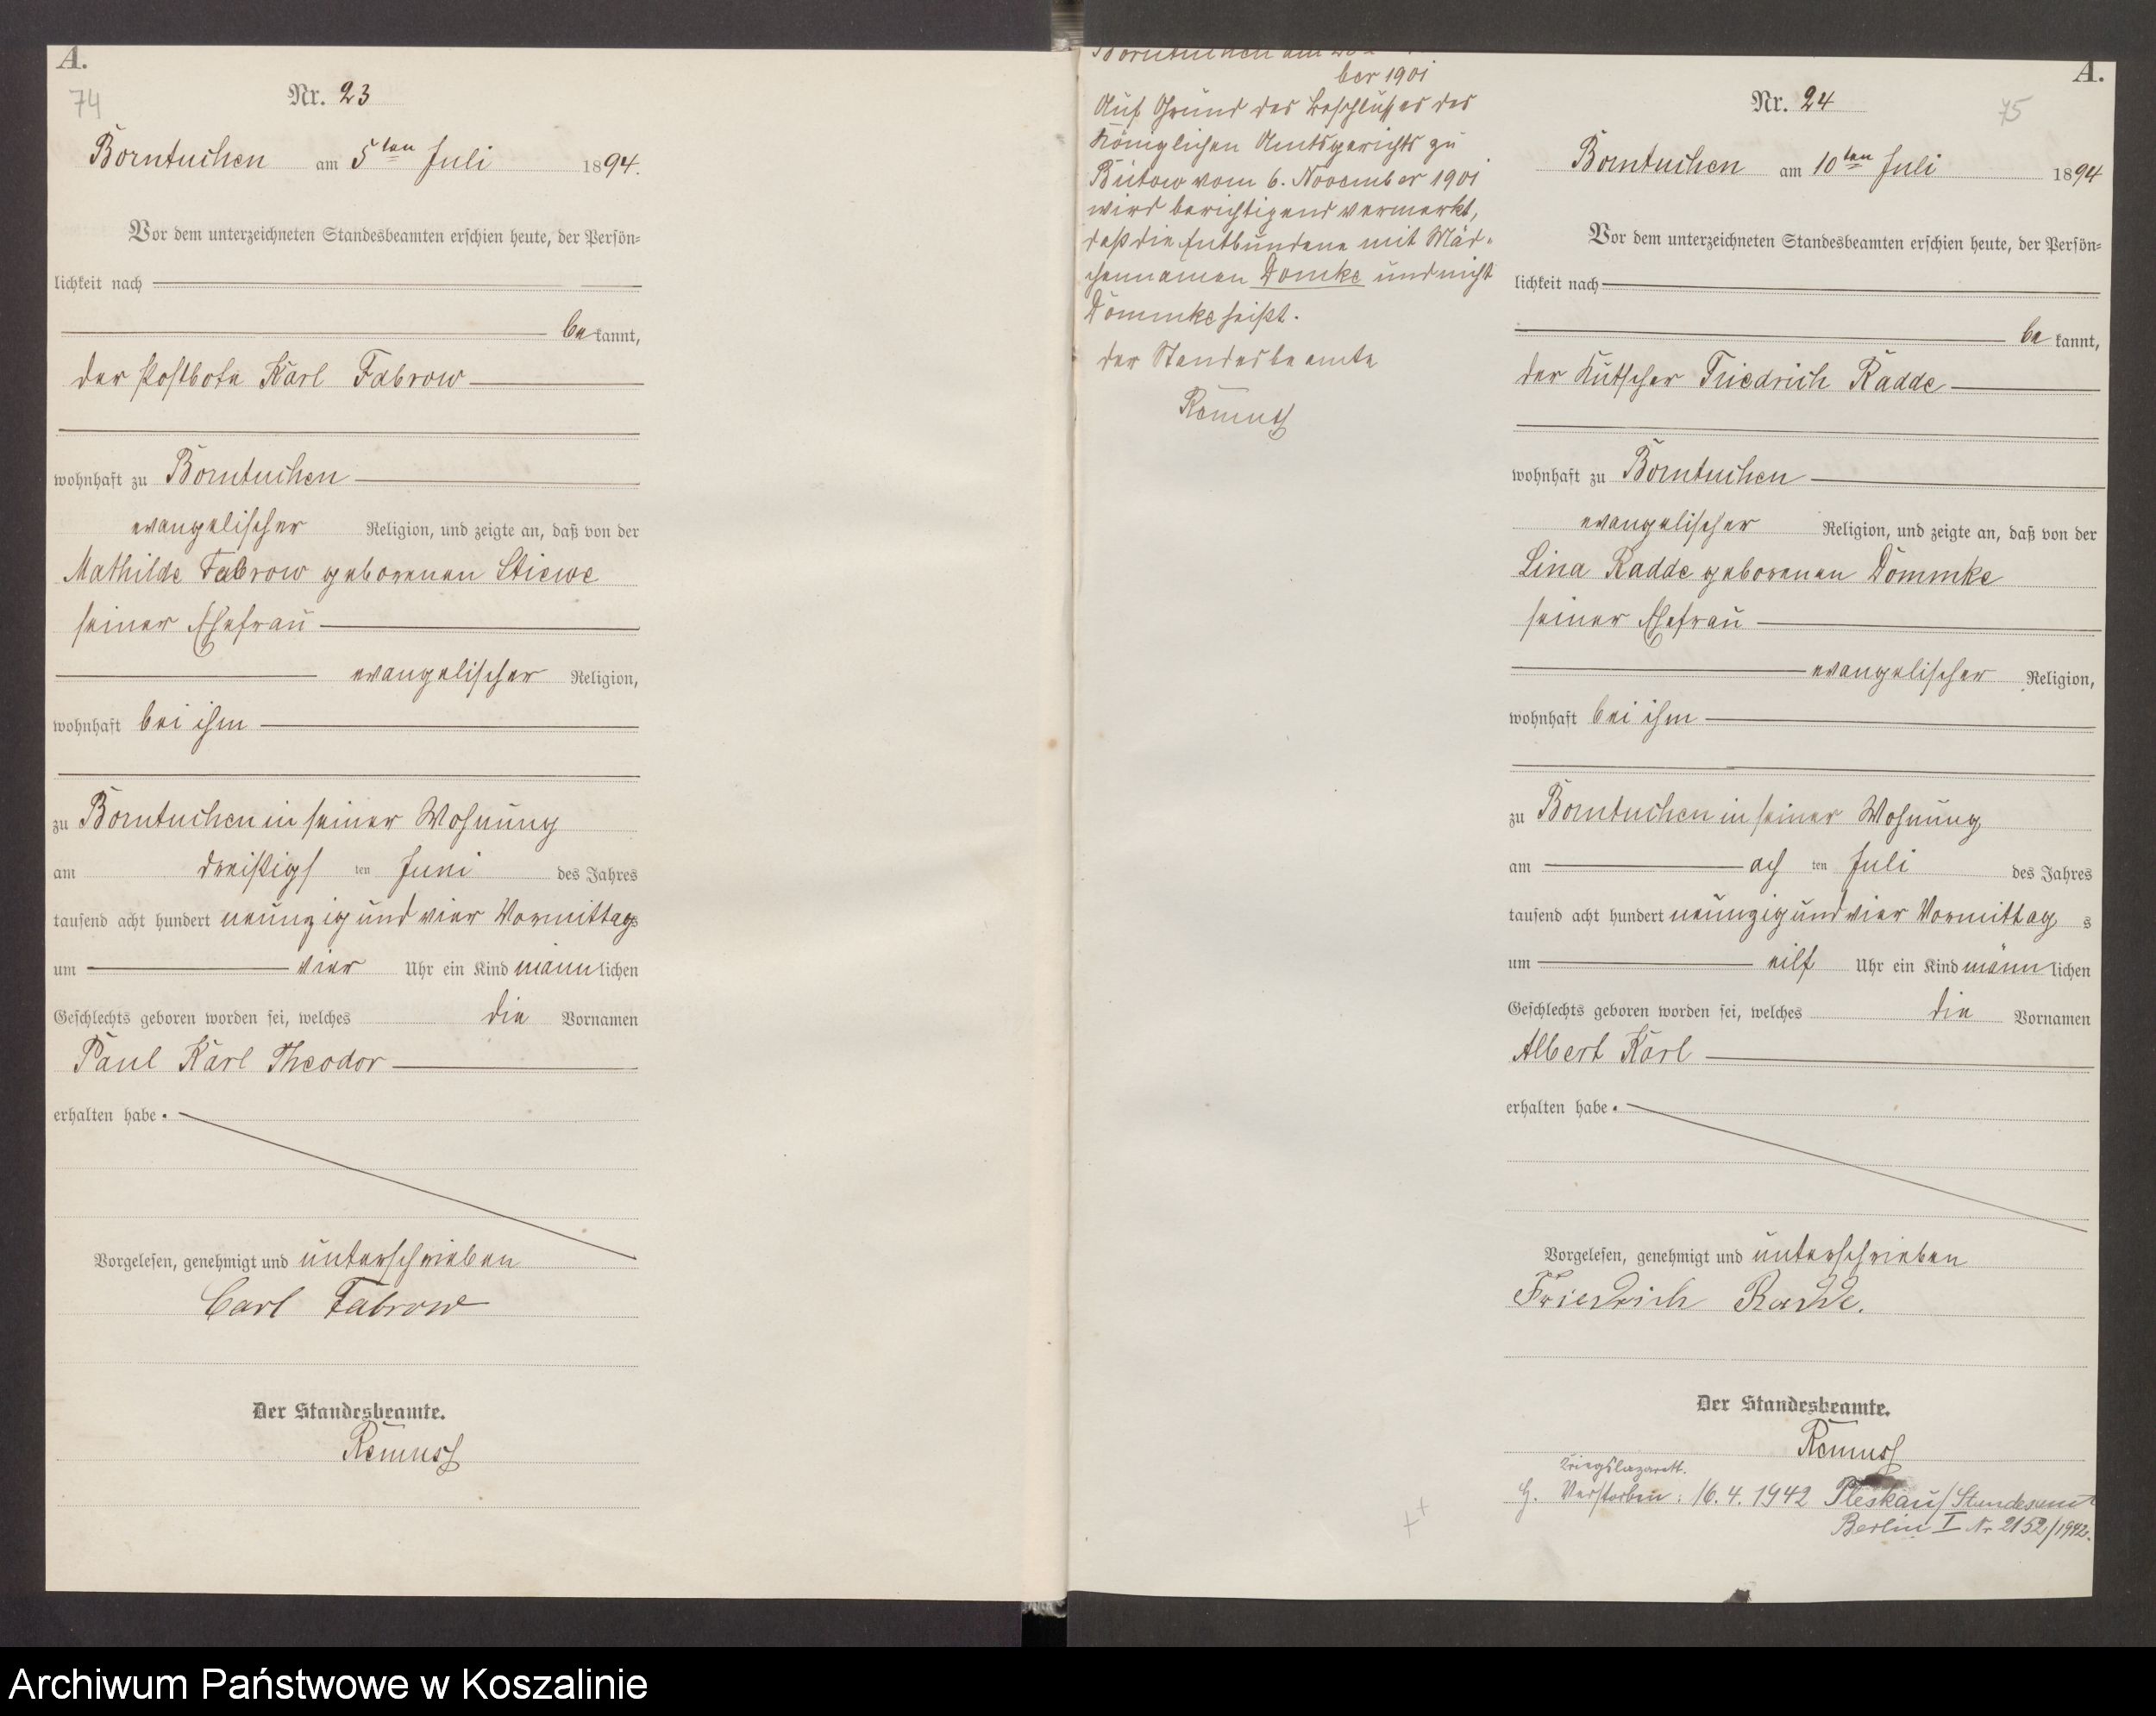 A.
74
Nr. 23
Borntuchen am 5ten Juli 1894.
Vor dem unterzeichneten Standesbeamten erschien heute, der Persön-
lichkeit nach
bekannt,
der Postbote Karl Fabrow
wohnhaft zu Borntuchen
evangelischer Religion, und zeigte an, daß von der
Mathilde Fabrow geborenen Stiewe
seiner Ehefrau
evangelischer Religion,
wohnhaft bei ihm
zu Borntuchen in seiner Wohnung
am dreißigs ten Juni des Jahres
tausend acht hundert neunzig und vier Vormittags
um vier Uhr ein Kind männlichen
Geschlechts geboren worden sei, welches die Vornamen
Paul Karl Theodor
erhalten habe.
Vorgelesen, genehmigt und unterschrieben
Carl Fabrow
Der Standesbeamte.
Remuss
Borntuchen am
ber 1901
Auf Grund des Beschlusses des
Königlichen Amtsgerichts zu
Bütow vom 6. November 1901
wird berichtigend vermerkt,
daß die Entbundene mit Mäd-
chennamen Domke und nicht
Dömmke heißt.
der Standesbeamte
Remuss
A.
75
Nr. 24
Borntuchen am 10ten Juli 1894
Vor dem unterzeichneten Standesbeamten erschien heute, der Persön-
lichkeit nach
be kannt,
der Kutscher Friedrich Radde
wohnhaft zu Borntuchen
evangelischer Religion, und zeigte an, daß von der
Lina Radde geborenen Dömmke
seiner Ehefrau
evangelischer Religion,
wohnhaft bei ihm
zu Borntuchen in seiner Wohnung
am ach ten Juli des Jahres
tausend acht hundert neunzig und vier Vormittag s
um eilf Uhr ein Kind männlichen
Geschlechts geboren worden sei, welches die Vornamen
Albert Karl
erhalten habe.
Vorgelesen, genehmigt und unterschrieben
Friedrich Radde.
Der Standesbeamte.
Remuss
Kriegslazarett.
G. Verstorben: 16.4.1942 Pleskau/Standesamt
Berlin I Nr 2152/1942.
Archiwum Państwowe w Koszalinie